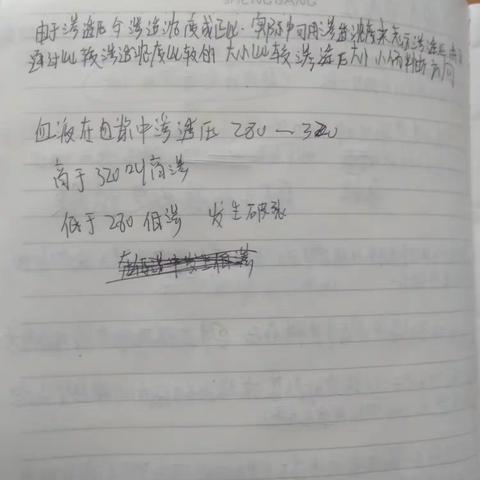 SHENGBANG
由于渗透压与渗透浓度成正比,实际中可用渗透浓度来表示渗透压
通过比较渗透浓度比较的大小比较渗透压大小 判断方向
血液在血浆中渗透压 280—320
高于320叫高渗
低于280低渗 发生破裂